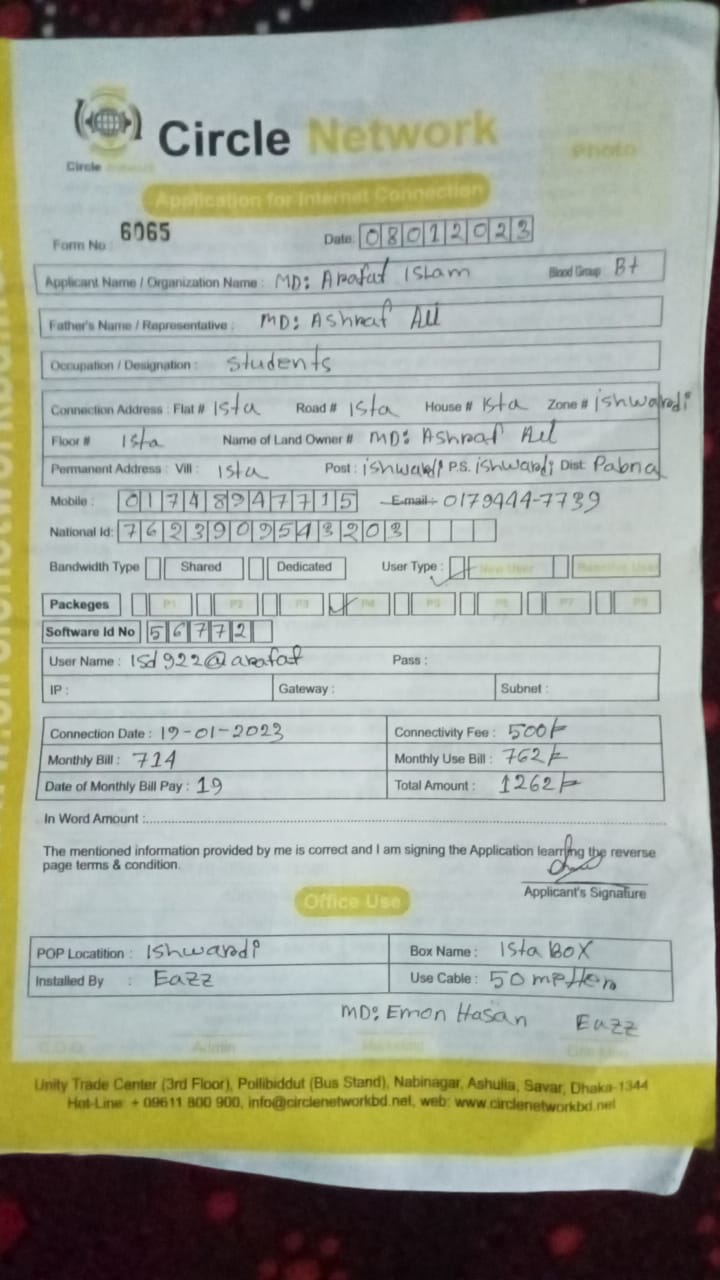 Circle Network
Circle
Photo
Application for Internet Connection
Form No : 6065 Date: 08012023
Applicant Name / Organization Name : MD: Arafat Islam Blood Group : B+
Father's Name / Representative : MD: Ashraf Ali
Occupation / Designation : Students
Connection Address : Flat # Ista Road # Ista House # Ista Zone # ishwardi
Floor # Ista Name of Land Owner # MD: Ashraf Ali
Permanent Address : Vill : Ista Post : ishwardi P.S. ishwardi Dist: Pabna
Mobile : 01748947715 E-mail : 0179444-7739
National Id: 7623909543203
Bandwidth Type Shared Dedicated User Type : New User
Packeges P1 P2 P3 P4 P5 P6 P7 P8
Software Id No 56772
User Name : isd922@arafat Pass :
IP : Gateway : Subnet :
Connection Date : 19-01-2023 Connectivity Fee : 500/-
Monthly Bill : 714 Monthly Use Bill : 762/-
Date of Monthly Bill Pay : 19 Total Amount : 1262/-
In Word Amount :
The mentioned information provided by me is correct and I am signing the Application learning the reverse
page terms & condition.
Applicant's Signature
Office Use
POP Locatition : Ishwardi Box Name : Ista BOX
Installed By : Eazz Use Cable : 50
MD: Emon Hasan Eazz
C.O.O. Admin Marketing
Unity Trade Center (3rd Floor), Pollibiddut (Bus Stand), Nabinagar, Ashulia, Savar, Dhaka-1344
Hot-Line: + 09611 800 900, info@circlenetworkbd.net, web: www.circlenetworkbd.net